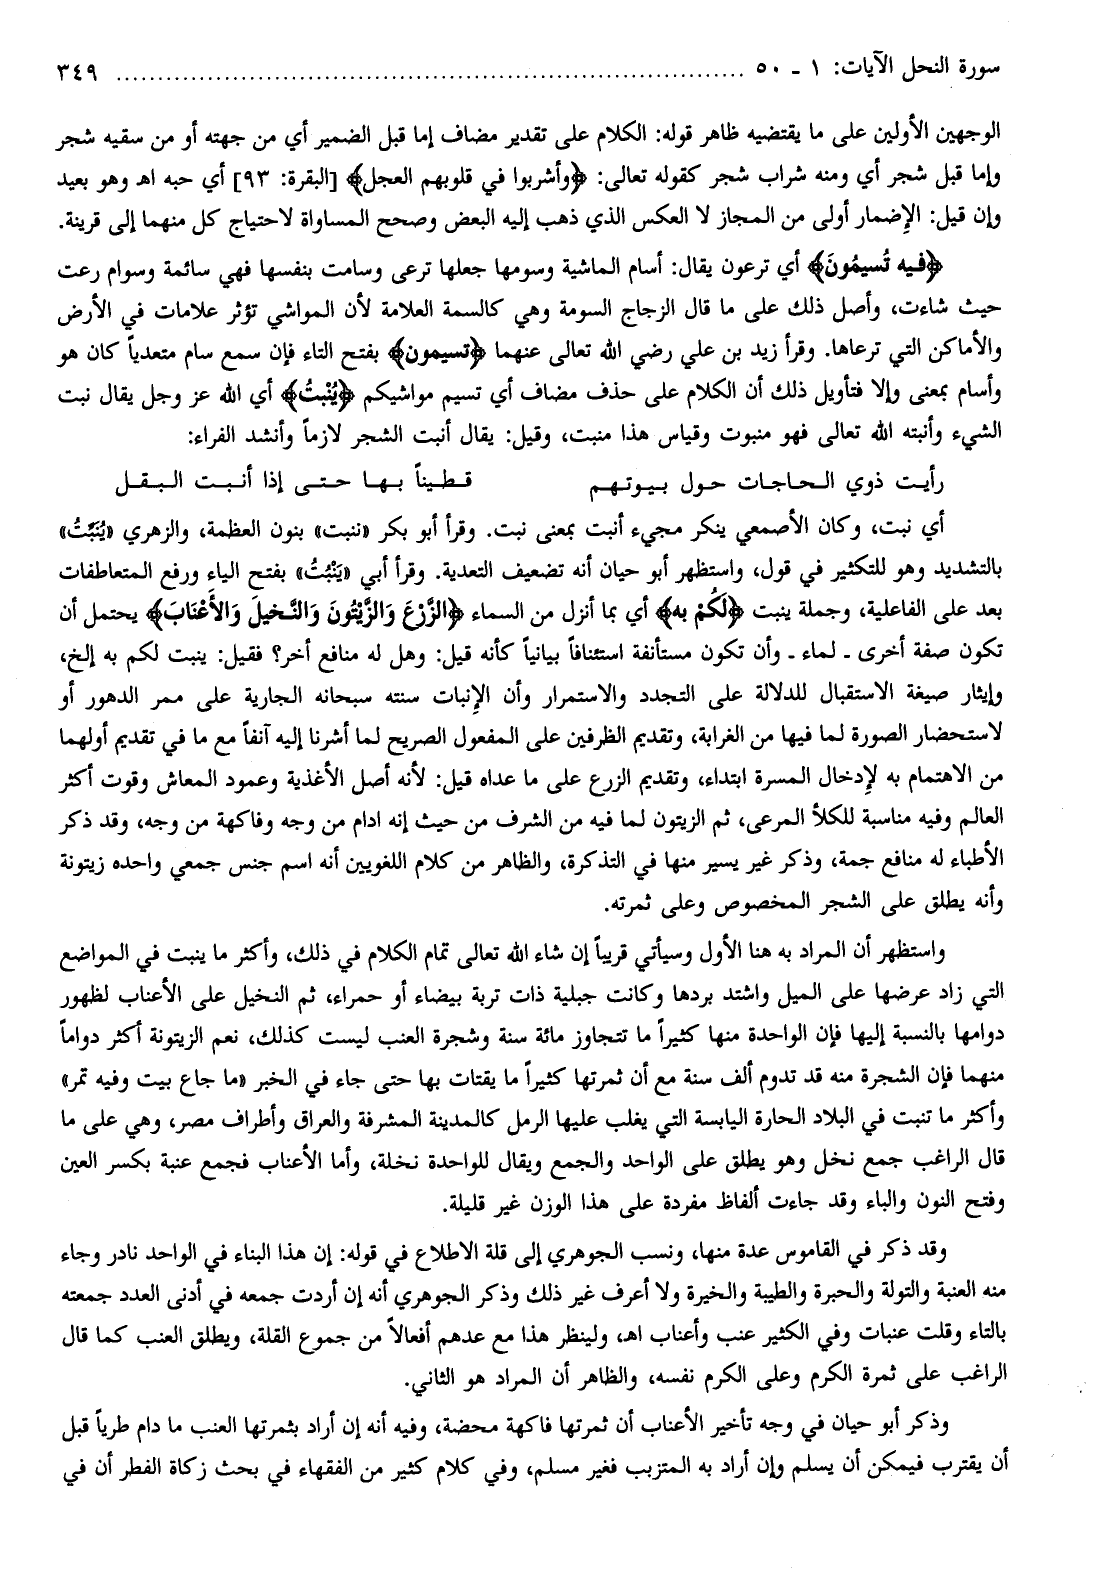 سورة النحل الآيات: ١ ـ ٥٠ ........................................ ٣٤٩
الوجهين الأولين على ما يقتضيه ظاهر قوله: الكلام على تقدير مضاف إما قبل الضمير أي من جهته أو من سقيه شجر
وإما قبل شجر أي ومنه شراب شجر كقوله تعالى: ﴿وأشربوا في قلوبهم العجل﴾ [البقرة: ٩٣] أي حبه اهـ وهو بعيد
وإن قيل: الإضمار أولى من المجاز لا العكس الذي ذهب إليه البعض وصحح المساواة لاحتياج كل منهما إلى قرينة.
﴿فيه تُسيمُونَ﴾ أي ترعون يقال: أسام الماشية وسومها جعلها ترعى وسامت بنفسها فهي سائمة وسوام رعت
حيث شاءت، وأصل ذلك على ما قال الزجاج السومة وهي كالسمة العلامة لأن المواشي تؤثر علامات في الأرض
والأماكن التي ترعاها. وقرأ زيد بن علي رضي الله تعالى عنهما ﴿تسيمون﴾ بفتح التاء فإن سمع سام متعدياً كان هو
وأسام بمعنى وإلا فتأويل ذلك أن الكلام على حذف مضاف أي تسيم مواشيكم ﴿يُنْبتُ﴾ أي الله عز وجل يقال نبت
الشيء وأنبته الله تعالى فهو منبوت وقياس هذا منبت، وقيل: يقال أنبت الشجر لازماً وأنشد الفراء:
رأيت ذوي الحاجات حول بيوتهم قطيناً بها حتى إذا أنبت البقل
أي نبت، وكان الأصمعي ينكر مجيء أنبت بمعنى نبت. وقرأ أبو بكر «ننبت» بنون العظمة، والزهري «يُنَبِّتُ»
بالتشديد وهو للتكثير في قول، واستظهر أبو حيان أنه تضعيف التعدية. وقرأ أبي «يَنْبُتُ» بفتح الياء ورفع المتعاطفات
بعد على الفاعلية، وجملة ينبت ﴿لَكُمْ به﴾ أي بما أنزل من السماء ﴿الزَّرْعَ وَالزَّيْتُونَ وَالنَّخيلَ وَالأَعْنَابَ﴾ يحتمل أن
تكون صفة أخرى ـ لماء ـ وأن تكون مستأنفة استئنافاً بيانياً كأنه قيل: وهل له منافع أخر؟ فقيل: ينبت لكم به إلخ،
وإيثار صيغة الاستقبال للدلالة على التجدد والاستمرار وأن الإنبات سنته سبحانه الجارية على ممر الدهور أو
لاستحضار الصورة لما فيها من الغرابة، وتقديم الظرفين على المفعول الصريح لما أشرنا إليه آنفاً مع ما في تقديم أولهما
من الاهتمام به لإدخال المسرة ابتداء، وتقديم الزرع على ما عداه قيل: لأنه أصل الأغذية وعمود المعاش وقوت أكثر
العالم وفيه مناسبة للكلأ المرعى، ثم الزيتون لما فيه من الشرف من حيث إنه ادام من وجه وفاكهة من وجه، وقد ذكر
الأطباء له منافع جمة، وذكر غير يسير منها في التذكرة، والظاهر من كلام اللغويين أنه اسم جنس جمعي واحده زيتونة
وأنه يطلق على الشجر المخصوص وعلى ثمرته.
واستظهر أن المراد به هنا الأول وسيأتي قريباً إن شاء الله تعالى تمام الكلام في ذلك، وأكثر ما ينبت في المواضع
التي زاد عرضها على الميل واشتد بردها وكانت جبلية ذات تربة بيضاء أو حمراء، ثم النخيل على الأعناب لظهور
دوامها بالنسبة إليها فإن الواحدة منها كثيراً ما تتجاوز مائة سنة وشجرة العنب ليست كذلك، نعم الزيتونة أكثر دواماً
منهما فإن الشجرة منه قد تدوم ألف سنة مع أن ثمرتها كثيراً ما يقتات بها حتى جاء في الخبر «ما جاع بيت وفيه تمر»
وأكثر ما تنبت في البلاد الحارة اليابسة التي يغلب عليها الرمل كالمدينة المشرفة والعراق وأطراف مصر، وهي على ما
قال الراغب جمع نخل وهو يطلق على الواحد والجمع ويقال للواحدة نخلة، وأما الأعناب فجمع عنبة بكسر العين
وفتح النون والباء وقد جاءت ألفاظ مفردة على هذا الوزن غير قليلة.
وقد ذكر في القاموس عدة منها، ونسب الجوهري إلى قلة الاطلاع في قوله: إن هذا البناء في الواحد نادر وجاء
منه العنبة والتولة والحبرة والطيبة والخيرة ولا أعرف غير ذلك وذكر الجوهري أنه إن أردت جمعه في أدنى العدد جمعته
بالتاء وقلت عنبات وفي الكثير عنب وأعناب اهـ، ولينظر هذا مع عدهم أفعالاً من جموع القلة، ويطلق العنب كما قال
الراغب على ثمرة الكرم وعلى الكرم نفسه، والظاهر أن المراد هو الثاني.
وذكر أبو حيان في وجه تأخير الأعناب أن ثمرتها فاكهة محضة، وفيه أنه إن أراد بثمرتها العنب ما دام طرياً قبل
أن يقترب فيمكن أن يسلم وإن أراد به المتزبب فغير مسلم، وفي كلام كثير من الفقهاء في بحث زكاة الفطر أن في